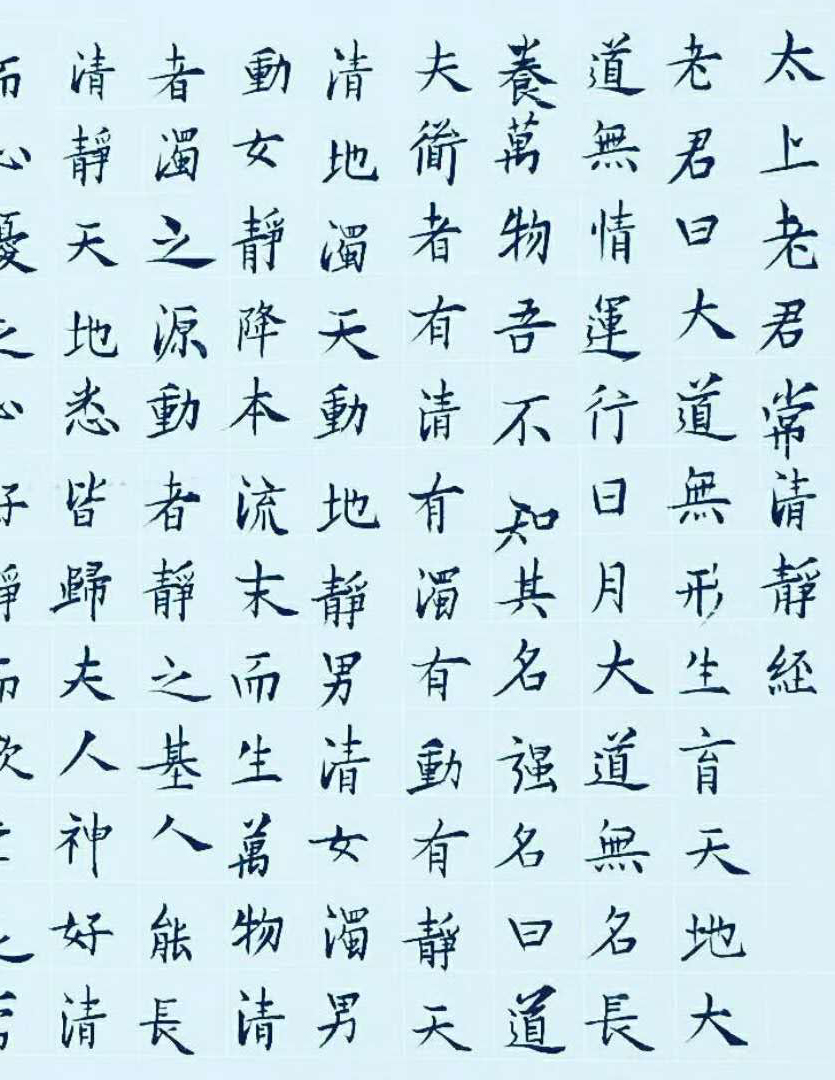 太上老君常清靜経
老君曰大道無形生育天地大
道無情運行日月大道無名長
養萬物吾不知其名强名曰道
夫衜者有清有濁有動有靜天
清地濁天動地靜男清女濁男
動女靜降本流末而生萬物清
者濁之源動者靜之基人能長
清靜天地悉皆歸夫人神好清
而心擾之心好靜而欲之常